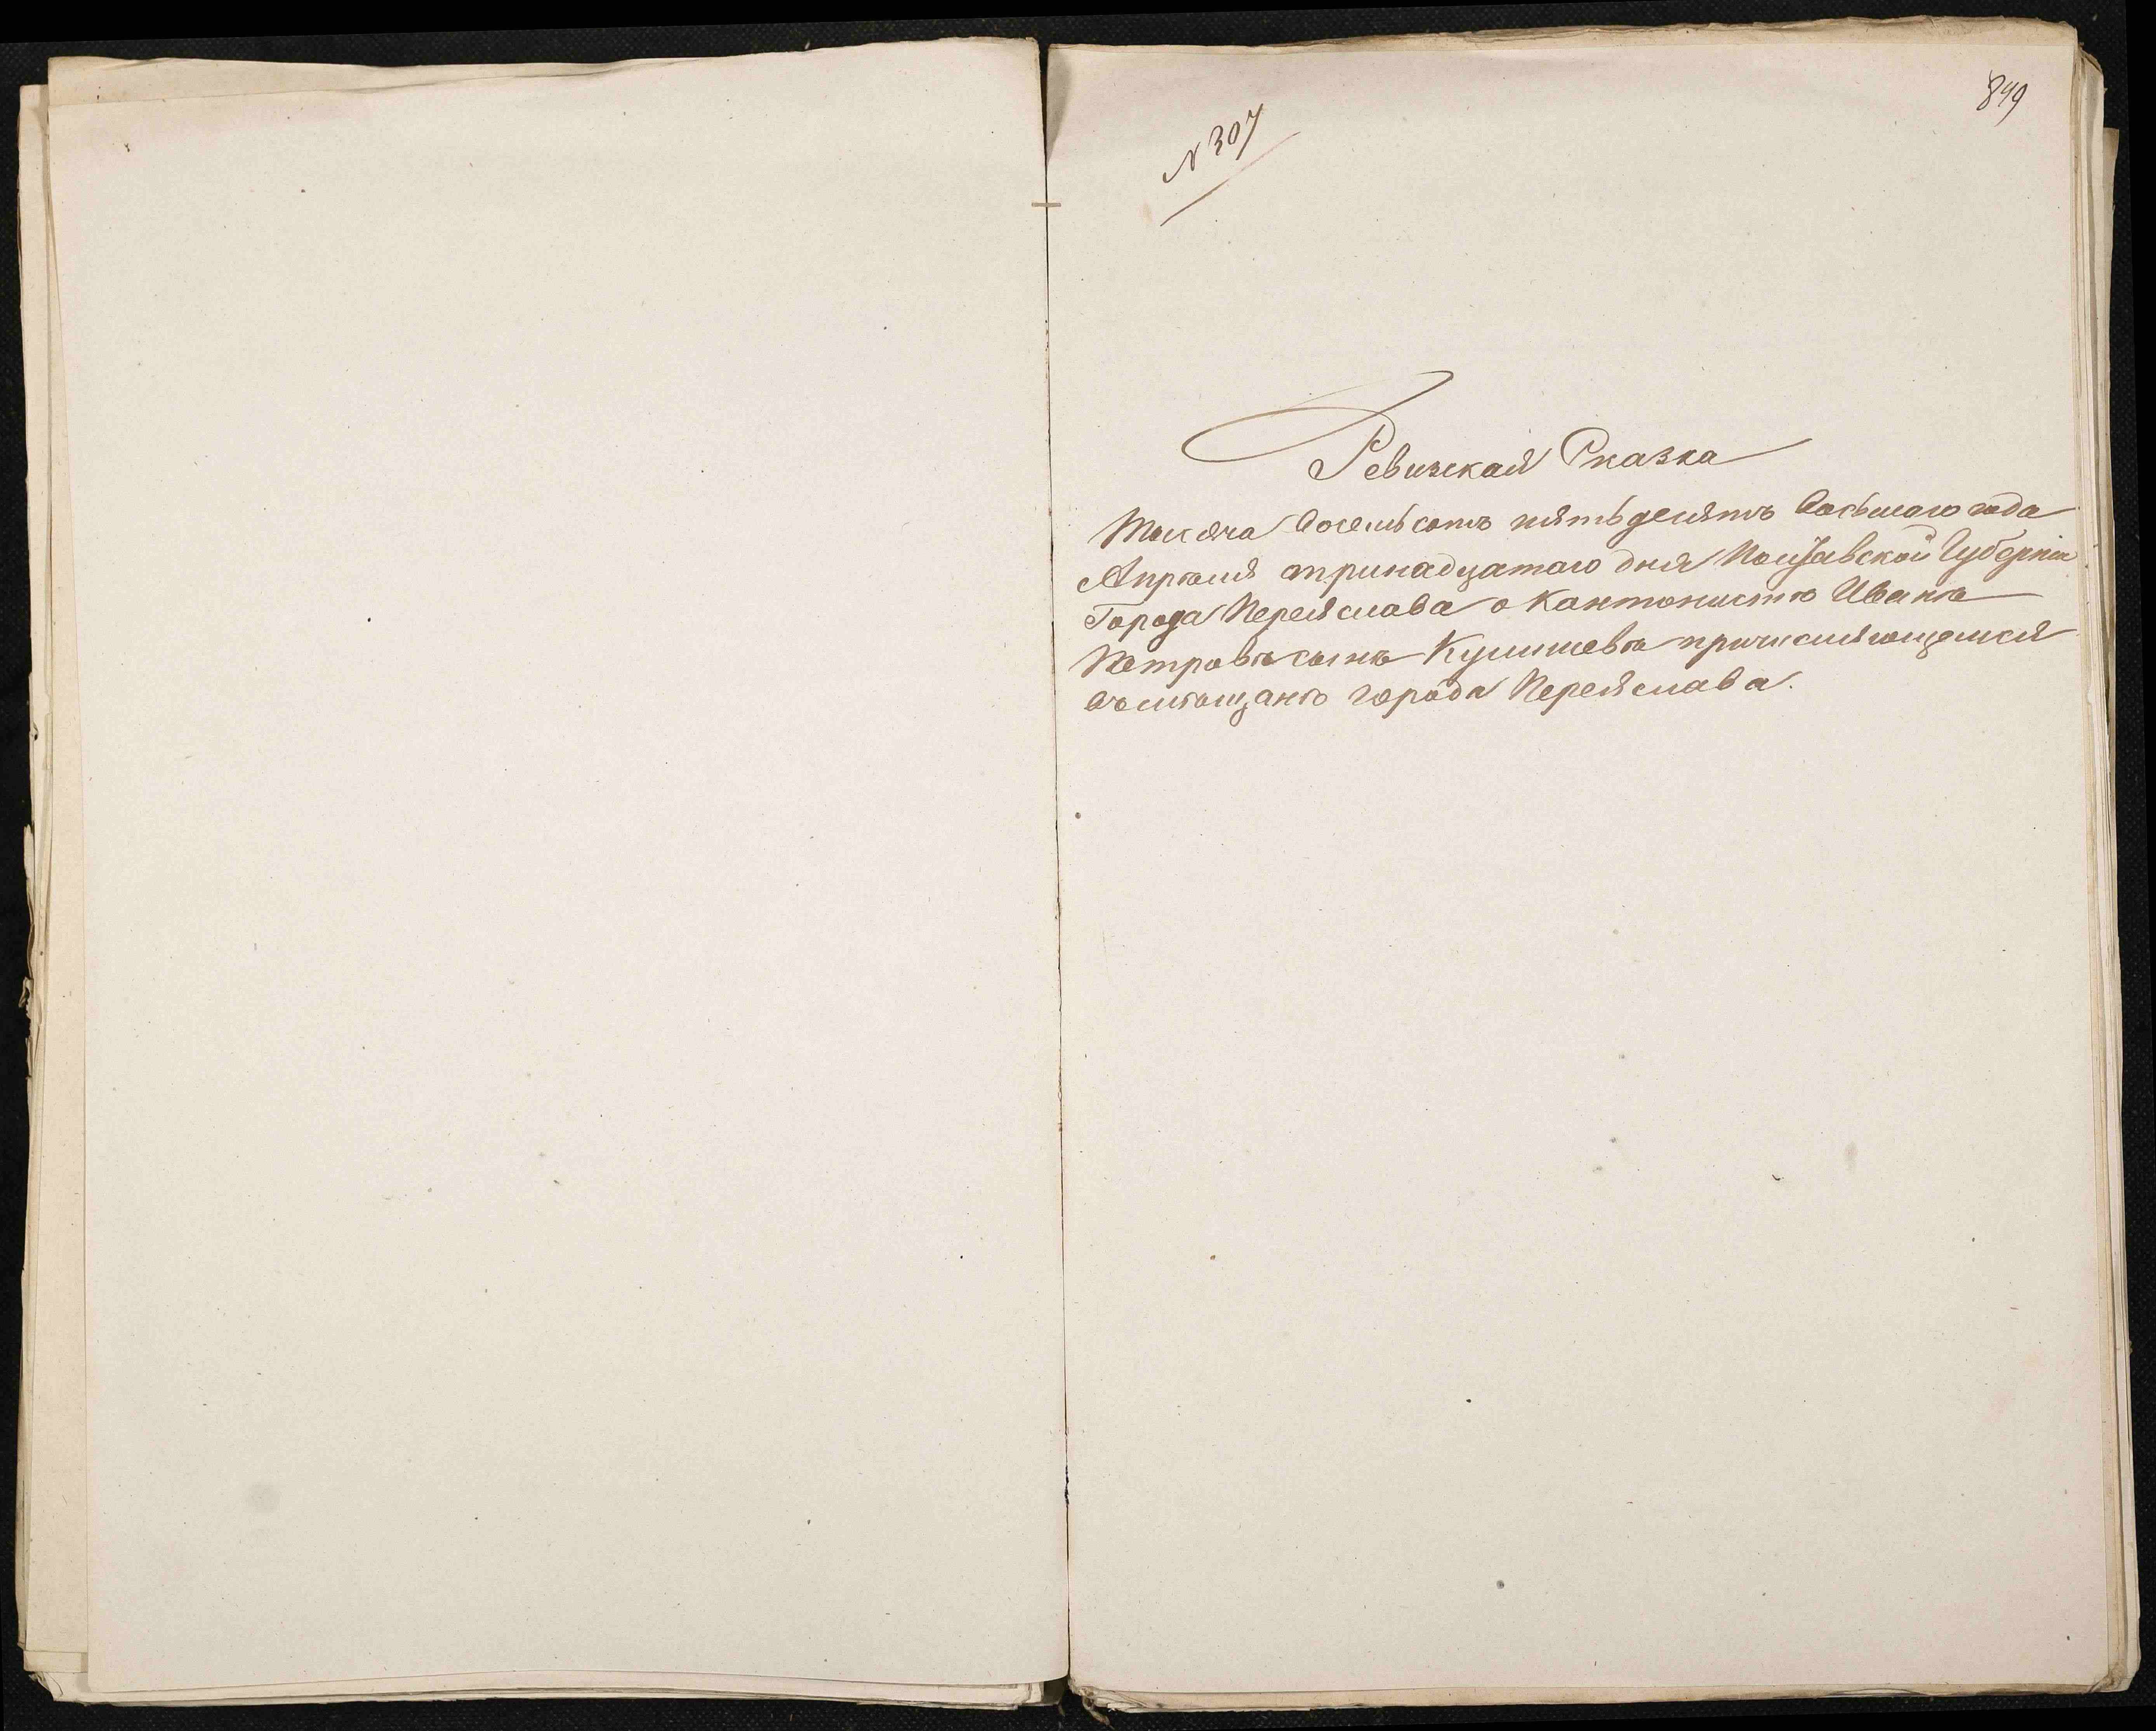 849
N 307
Ревизская Сказка
Тысяча восемьсотъ пятьдесятъ восьмаго года
Апрѣля тринадцатаго дня Полтавской Губерніи
Города Переяслава о Кантонистѣ Иванѣ
Петровѣ сынѣ причисляющемся
въ мѣщанѣ города Переяслава.